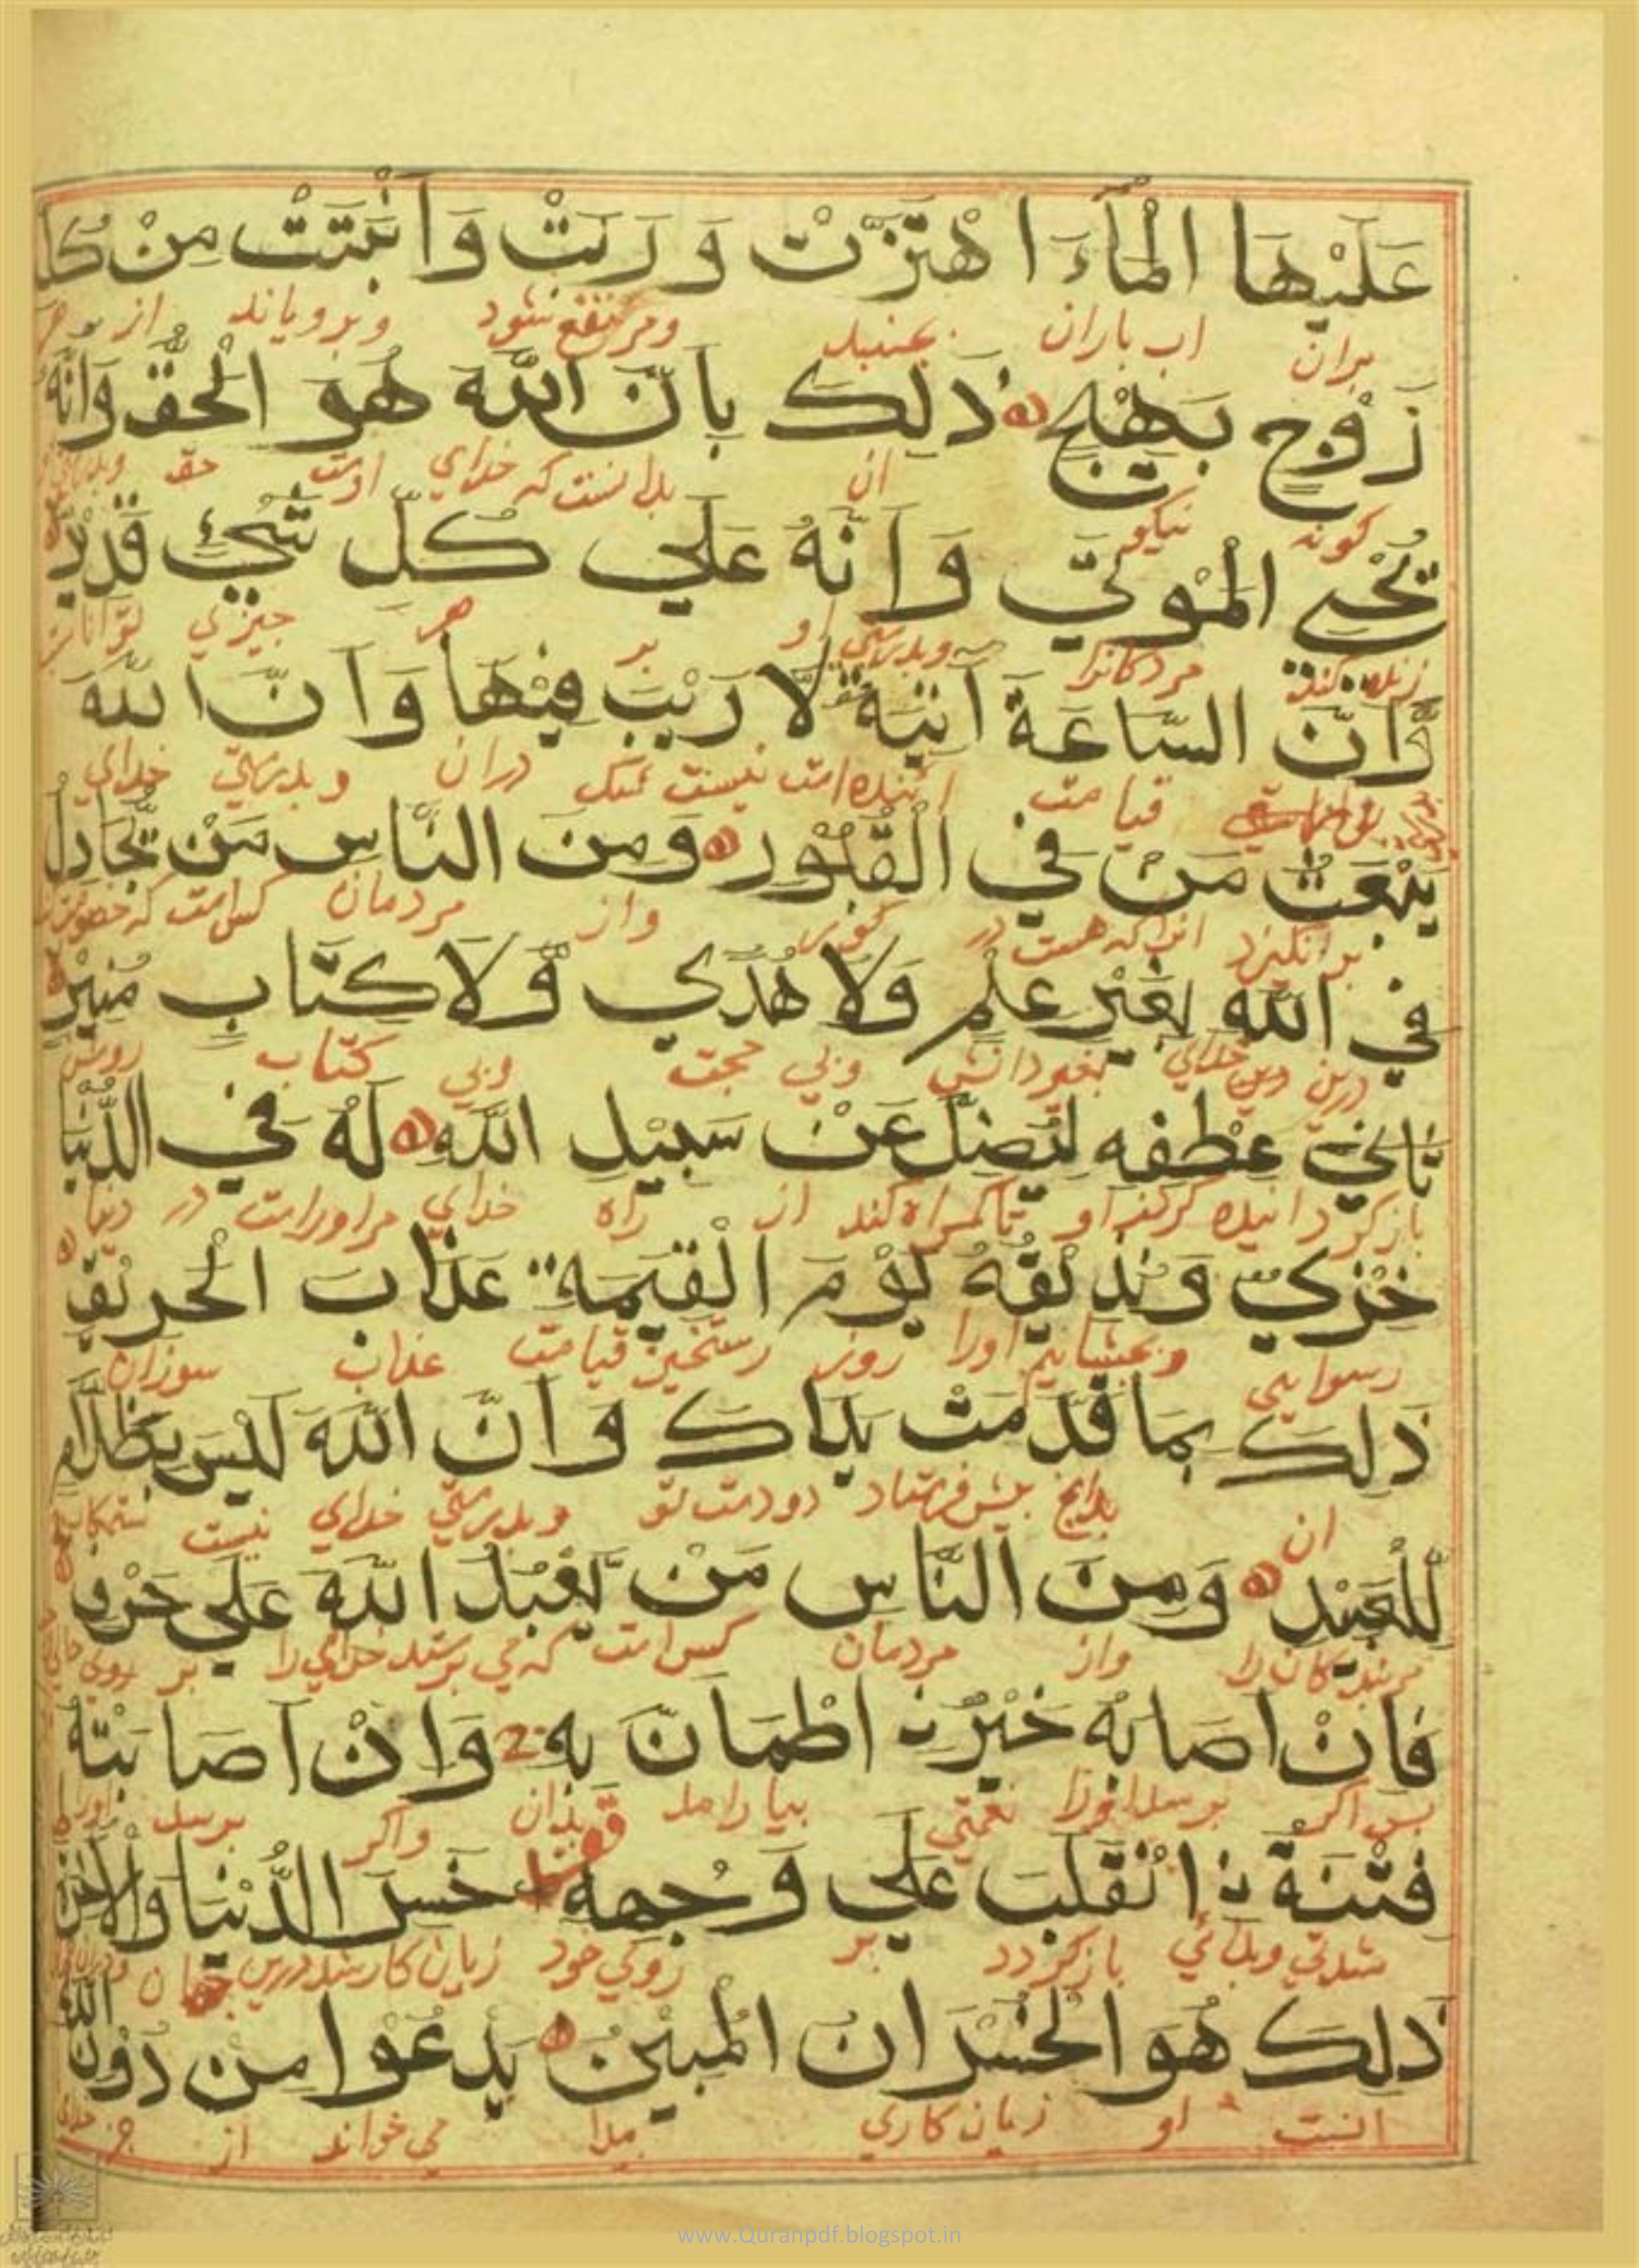 عَلَيْهَا الْمَآءَ اهْتَزَّتْ وَرَبَتْ وَأَنْبَتَتْ مِنْ كُلِّ
بران اب باران بجنبد ومرتفع شود وبرویاند از هر
زَوْجٍ بَهِيْجٍ ذٰلِكَ بِأَنَّ اللّٰهَ هُوَ الْحَقُّ وَأَنَّهُ
کونه نیکو ان بدانست که خدای اوست حق
يُحْيِ الْمَوْتٰي وَأَنَّهُ عَلٰي كُلِّ شَيْءٍ قَدِيْرٌ
زنده کند مردکانرا وبدرستی او بر هر چیزی توانا
وَّأَنَّ السَّاعَةَ اٰتِيَةٌ لَّا رَيْبَ فِيْهَا وَأَنَّ اللّٰهَ
قیامت ائنده است نیست شک دران وبدرستی خدای
يَبْعَثُ مَنْ فِي الْقُبُوْرِ وَمِنَ النَّاسِ مَنْ يُّجَادِلُ
بر انکیزد انرا که هست در کور واز مردمان کس است که
فِي اللّٰهِ بِغَيْرِ عِلْمٍ وَلَا هُدًي وَّلَا كِتَابٍ مُنِيْرٍ
درین دین خدای بغیر دانش وبی حجت وبی کتاب روشن
ثَانِيَ عِطْفِهِ لِيُضِلَّ عَنْ سَبِيْلِ اللّٰهِ لَهُ فِي الدُّنْيَا
باز کرداننده کردن او تا کمراه کند از راه خدای مر اوراست در دنیا
خِزْيٌ وَنُذِيْقُهُ يَوْمَ الْقِيٰمَةِ عَذَابَ الْحَرِيْقِ
رسوایی وبچشانیم اورا روز رستخیز قیامت عذاب سوزان
ذٰلِكَ بِمَا قَدَّمَتْ يَدَاكَ وَأَنَّ اللّٰهَ لَيْسَ بِظَلَّامٍ
ان بدانچ پیش فرستاد دو دست تو وبدرستی خدای نیست
لِّلْعَبِيْدِ وَمِنَ النَّاسِ مَنْ يَّعْبُدُ اللّٰهَ عَلٰي حَرْفٍ
مر بندکان را واز مردمان کس است که می پرستد خدای را بر روی
فَإِنْ أَصَابَهُ خَيْرُنِ اطْمَأَنَّ بِهِ وَإِنْ أَصَابَتْهُ
پس اکر برسد اورا نعمتی بیارامد بدان واکر برسد اورا
فِتْنَةُ نِ انْقَلَبَ عَلٰي وَجْهِهِ خَسِرَ الدُّنْيَا وَالْاٰخِرَةَ
شدتی وبلائی باز کردد بر روی خود زیان کار شد درین جهان
ذٰلِكَ هُوَ الْخُسْرَانُ الْمُبِيْنُ يَدْعُوْا مِنْ دُوْنِ اللّٰهِ
انست او زیان کاری می خواند از جز خدای
www.Quranpdf.blogspot.in